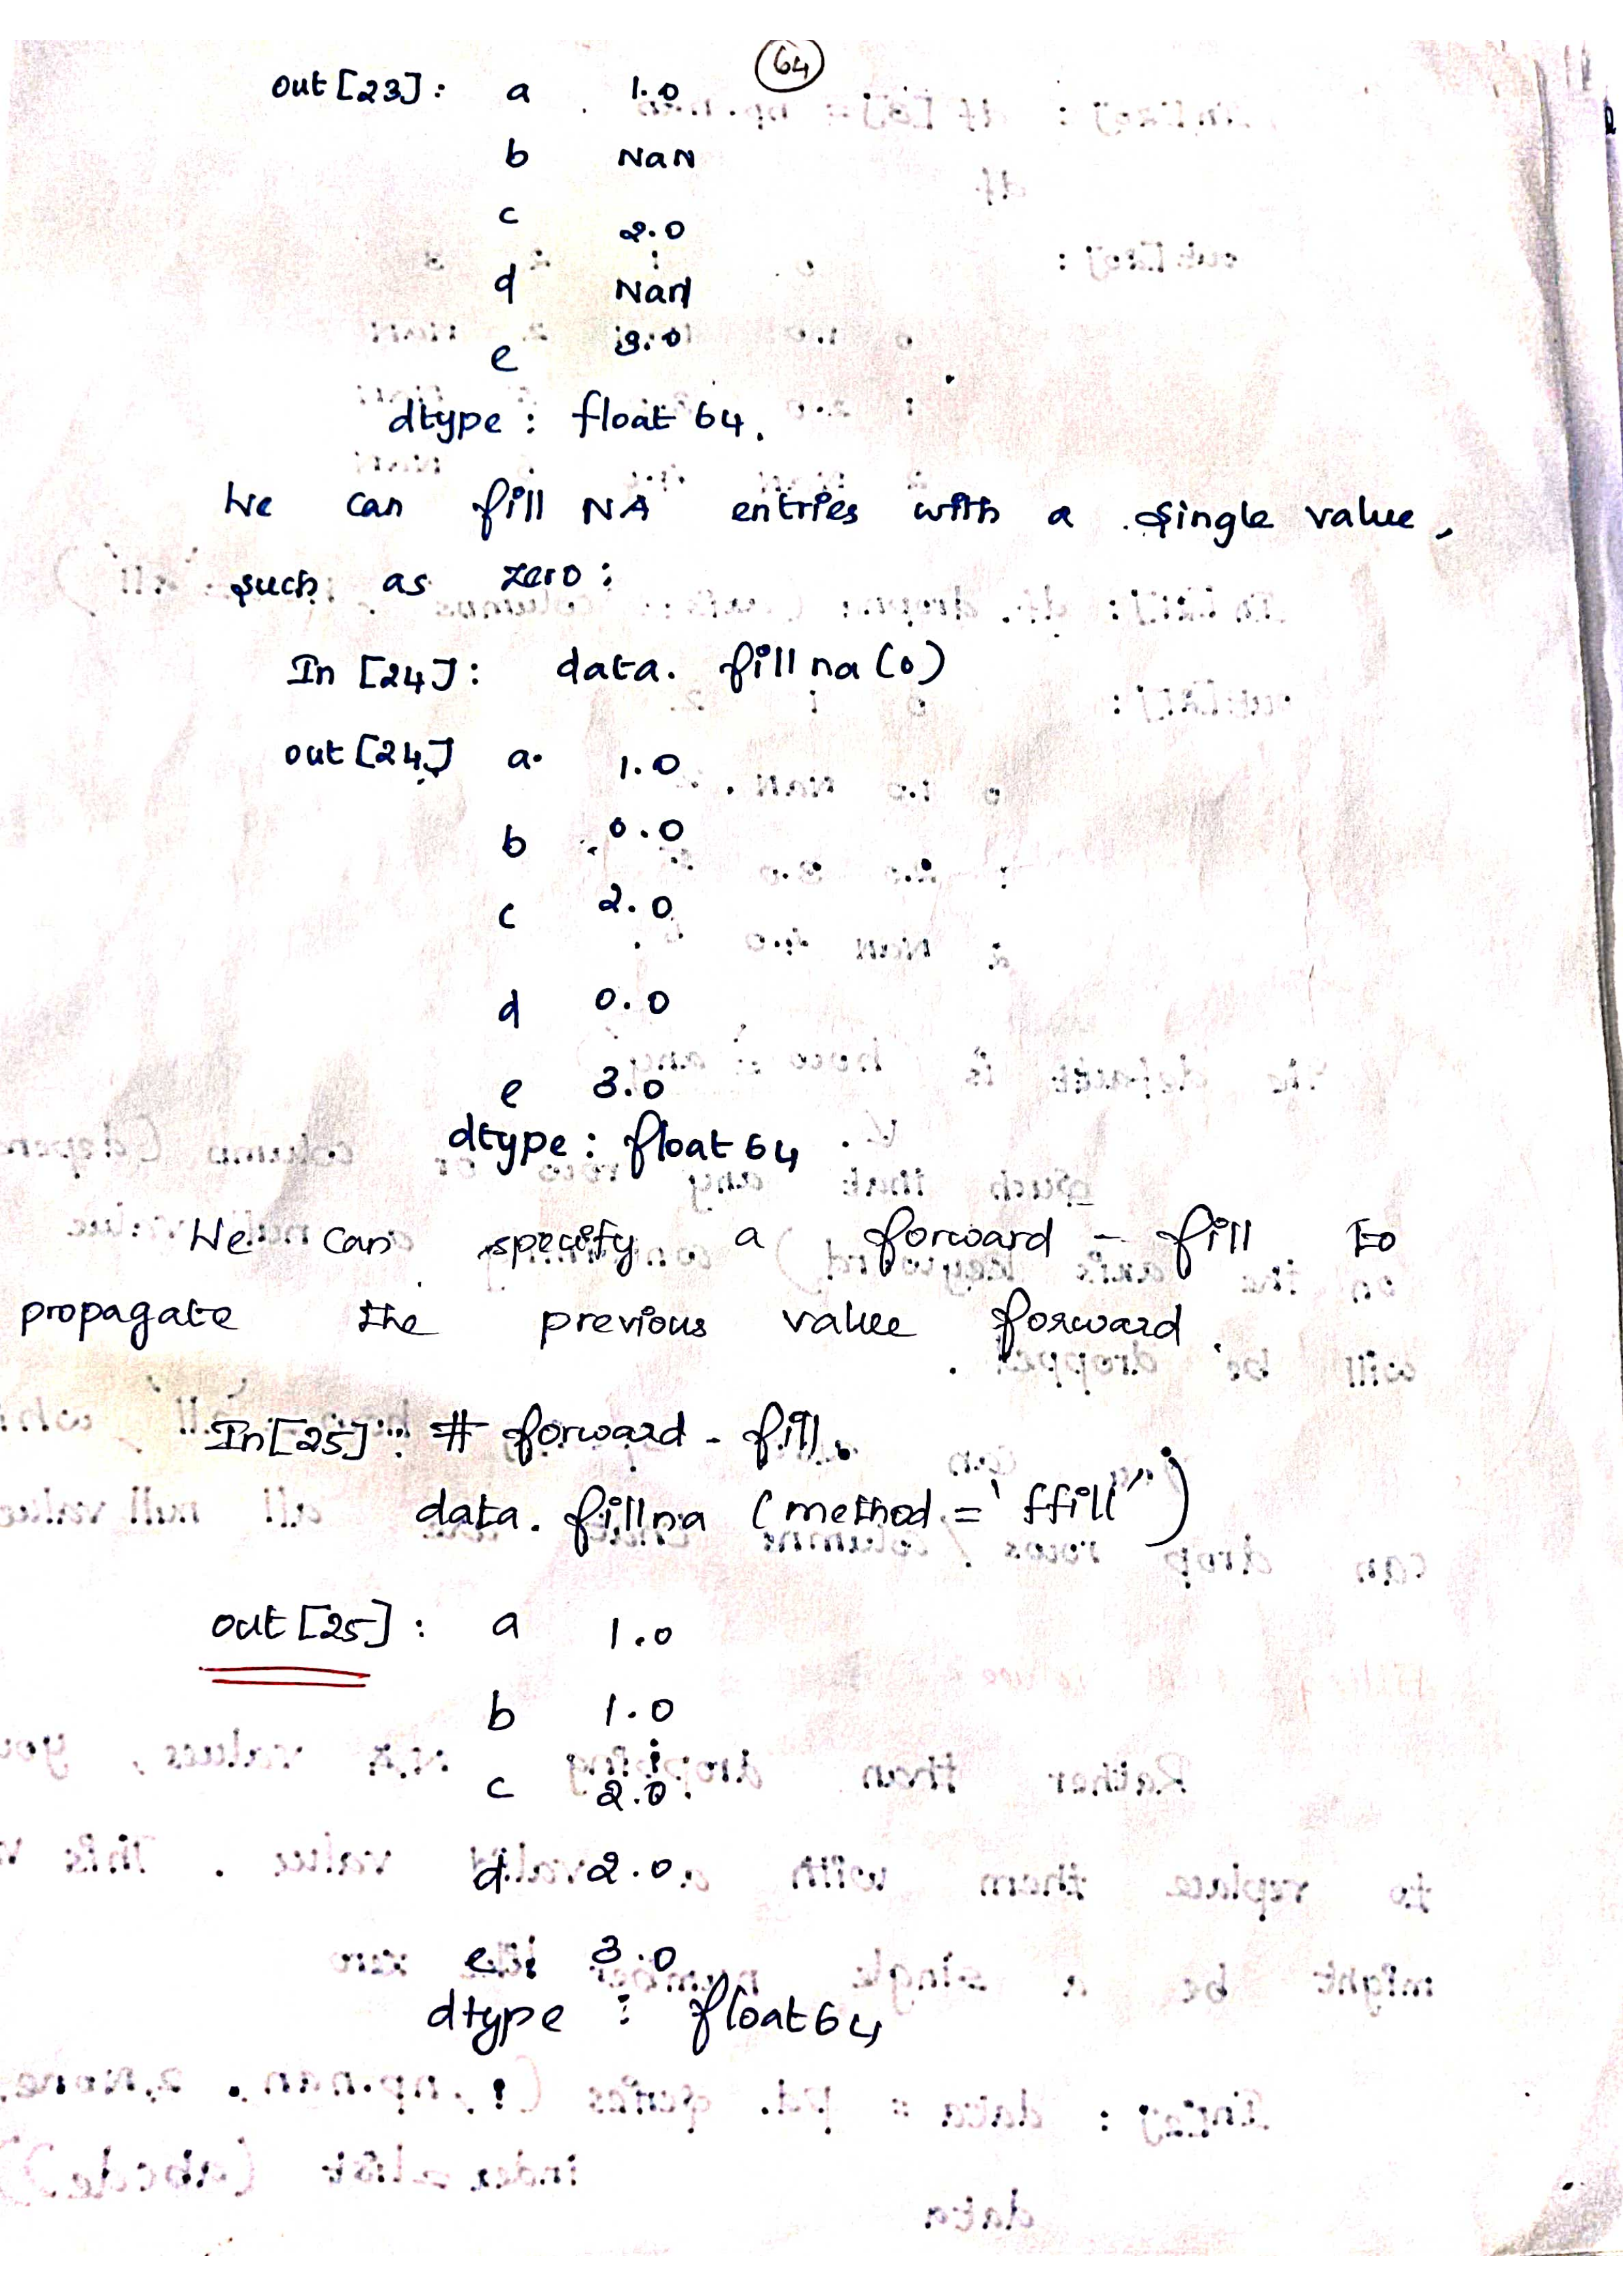 64
out [23]: a 1.0
b NaN
c 2.0
d NaN
e 3.0
dtype : float 64.
We can fill NA entries with a single value,
such as zero :
In [24]: data. fillna (0)
out [24] a. 1.0
b 0.0
c 2.0
d 0.0
e 3.0
dtype : float 64
We can specify a forward - fill to
propagate the previous value forward.
In [25]: # forward - fill.
data. fillna (method = 'ffill'')
out [25] : a 1.0
b 1.0
c 2.0
d 2.0
e 3.0
dtype : float64